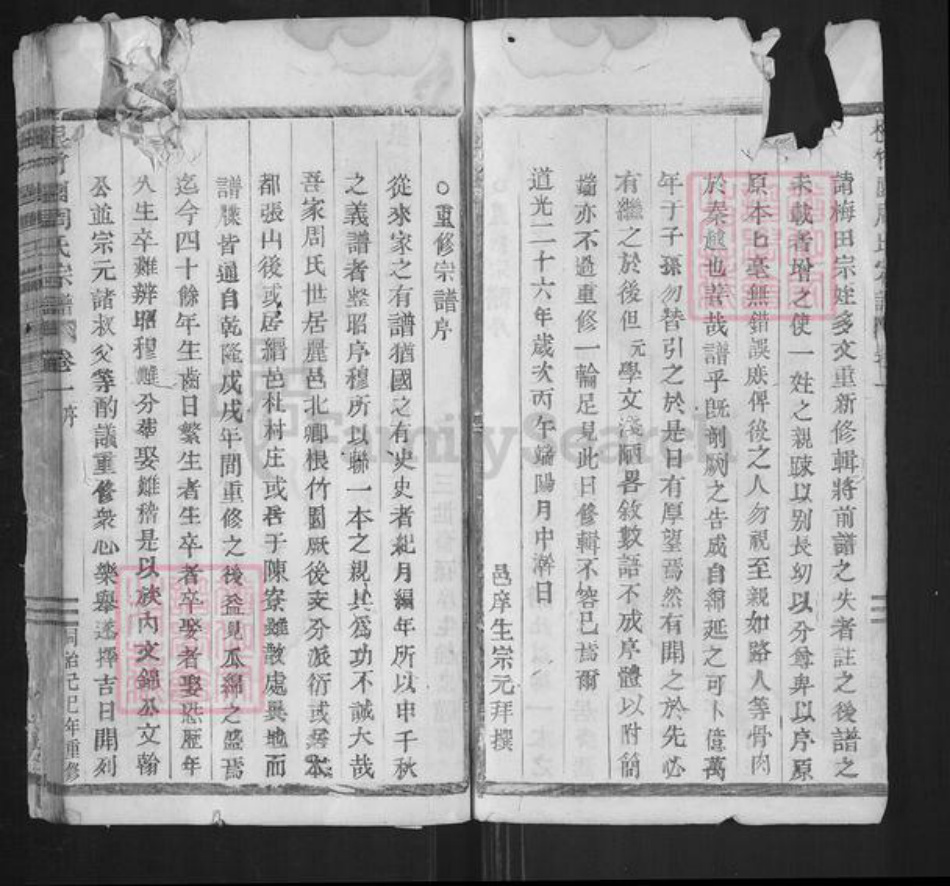 請梅田宗姓多文重新修輯將前譜之失者註之後譜之
未載者增之使一姓之親踈以别長幼以分尊卑以序原
原本上毫無錯誤庶俾後之人勿視至親如路人等骨肉
於秦越也善哉譜乎既剞劂之告成自綿延之可卜億萬
年于子孫勿替引之於是日有厚望焉然有開之於先必
有繼之於後但元學文淺陋畧敘數語不成序體以附簡
端亦不過重修一輪足見此日修輯不容已焉爾
道光二十六年歲次丙午端陽月中澣日
邑庠生宗元拜撰
○重修宗譜序
從來家之有譜猶國之有史史者紀月編年所以申千秋
之義譜者整昭序穆所以聯一本之親其爲功不誠大哉
吾家周氏世居麗邑北鄉根竹園厥後支分派衍或居本
都張山後或居縉邑杜村庄或居于陳寮雖散處異地而
譜牒皆通自乾隆戊戌年間重修之後益見瓜綿之盛焉
迄今四十餘年生齒日繁生者生卒者卒娶者娶恐歷年
久生卒難辨昭穆難分葬娶難稽是以族內文錦公文翰
公並宗元諸叔父等酌議重修衆心樂舉遂擇吉日開列
根竹園周氏宗譜 卷一 序
同治己巳年重修
FamilySearch